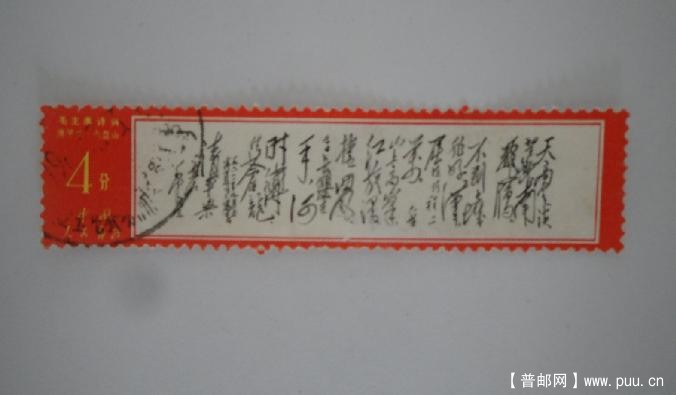 毛主席诗词
清平乐·六盘山
4分
中国
人民邮政
天高云淡
望断南
飞雁
不到长城
非好汉
屈指行程二
万 六盘
山上高峰
红旗漫
卷西风
今日长缨在
手 何
时缚
住苍龙
清平乐
【普邮网】www.puu.cn